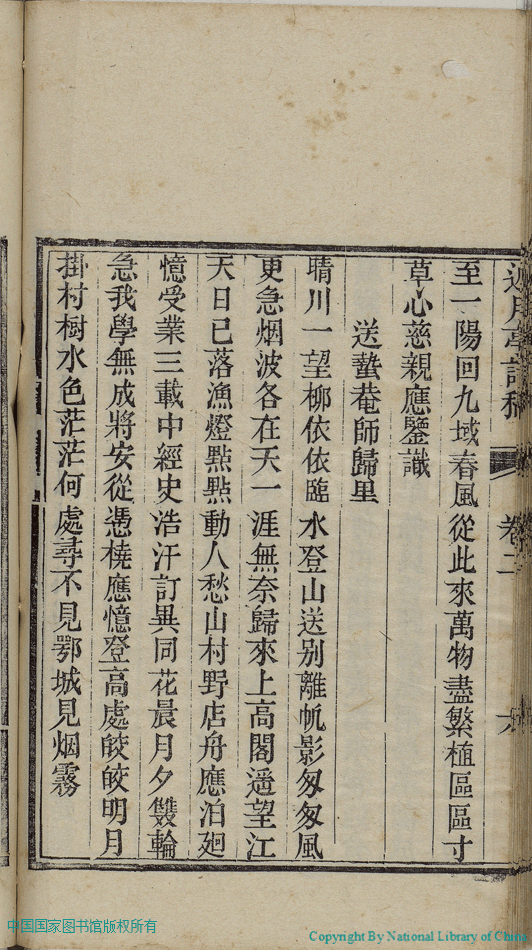 至一陽回九域春風從此來萬物盡繁植區區寸
草心慈親應鑒識
送蟄菴師歸里
晴川一望柳依依臨水登山送別離帆影匆匆風
更急烟波各在天一涯無奈歸來上高閣遥望江
天日已落漁燈點點動人愁山村野店舟應泊廻
憶受業三載中經史浩汗訂異同花晨月夕雙輪
急我學無成將安從憑橈應憶登高處皎皎明月
掛村樹水色茫茫何處尋不見鄂城見烟霧
卷二
中国国家图书馆版权所有
Copyright By National Library of China